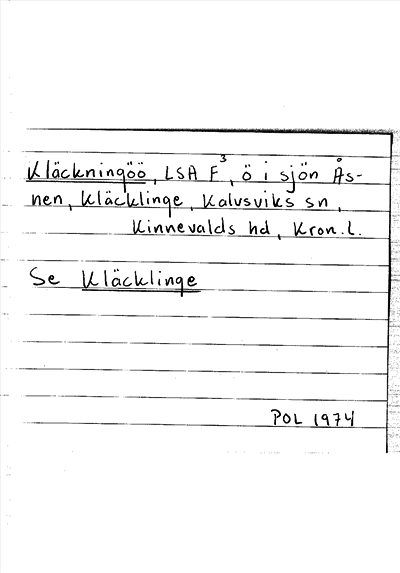 Kläckningöö, LSA F³, ö i sjön Ås-
nen, Kläcklinge, Kalvsviks sn,
Kinnevalds hd, Kron. l.
Se Kläcklinge
POL 1974